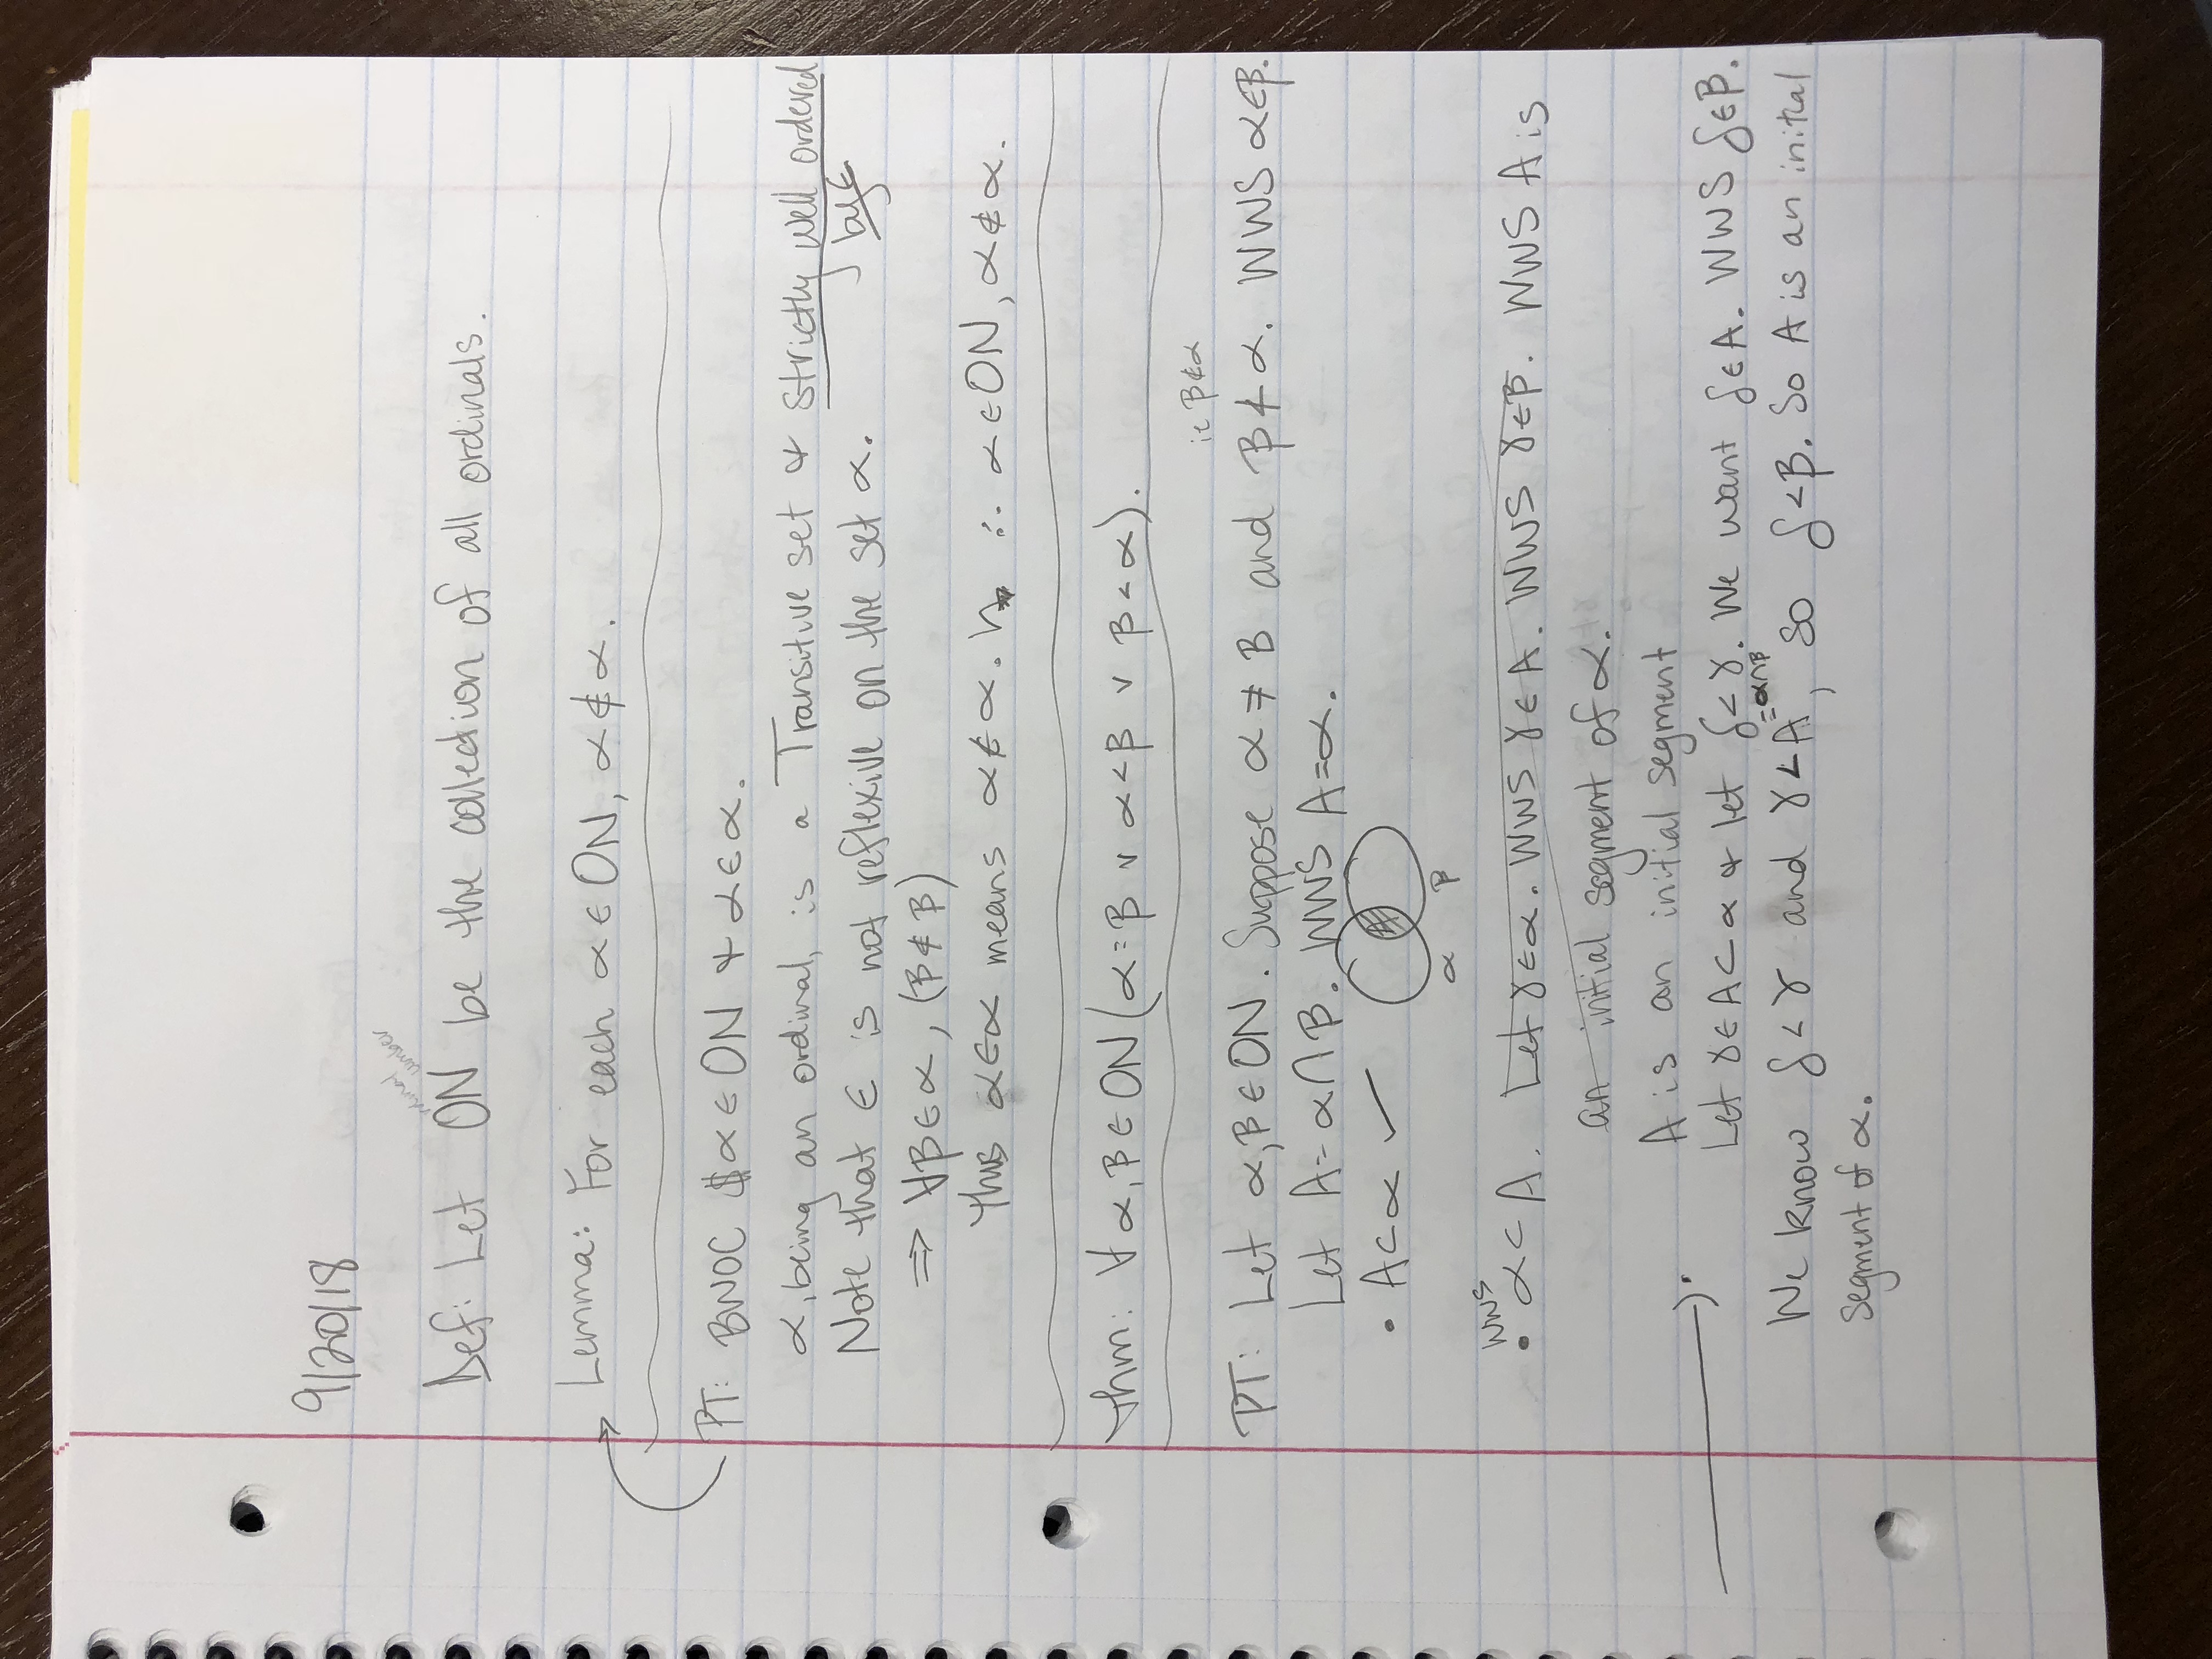 9/20/18
ordinal number
Def: Let ON be the collection of all ordinals.
Lemma: For each α ∈ ON, α ∉ α.
Pf: BWOC $ α ∈ ON & α ∈ α.
α, being an ordinal, is a Transitive set & strictly well ordered
by ∈
Note that ∈ is not reflexive on the set α.
⇒ ∀β ∈ α, (β ∉ β)
Thus α ∈ α means α ∉ α. ↯ ∴ α ∈ ON, α ∉ α.
Thm: ∀ α, β ∈ ON (α = β ∨ α < β ∨ β < α).
ie β ∉ α
Pf: Let α, β ∈ ON. Suppose α ≠ β and β ≮ α. WWS α ∈ β.
Let A = α ∩ β. WWS A = α.
• A ⊂ α ✓
α β
WWS
• α ⊂ A. Let γ ∈ α. WWS γ ∈ A. WWS γ ∈ β. WWS A is
an initial segment of α.
A is an initial segment
Let γ ∈ A ⊂ α & let δ < γ. We want δ ∈ A. WWS δ ∈ β.
= α ∩ β
We know δ < γ and γ < A, so δ < β. So A is an initial
segment of α.